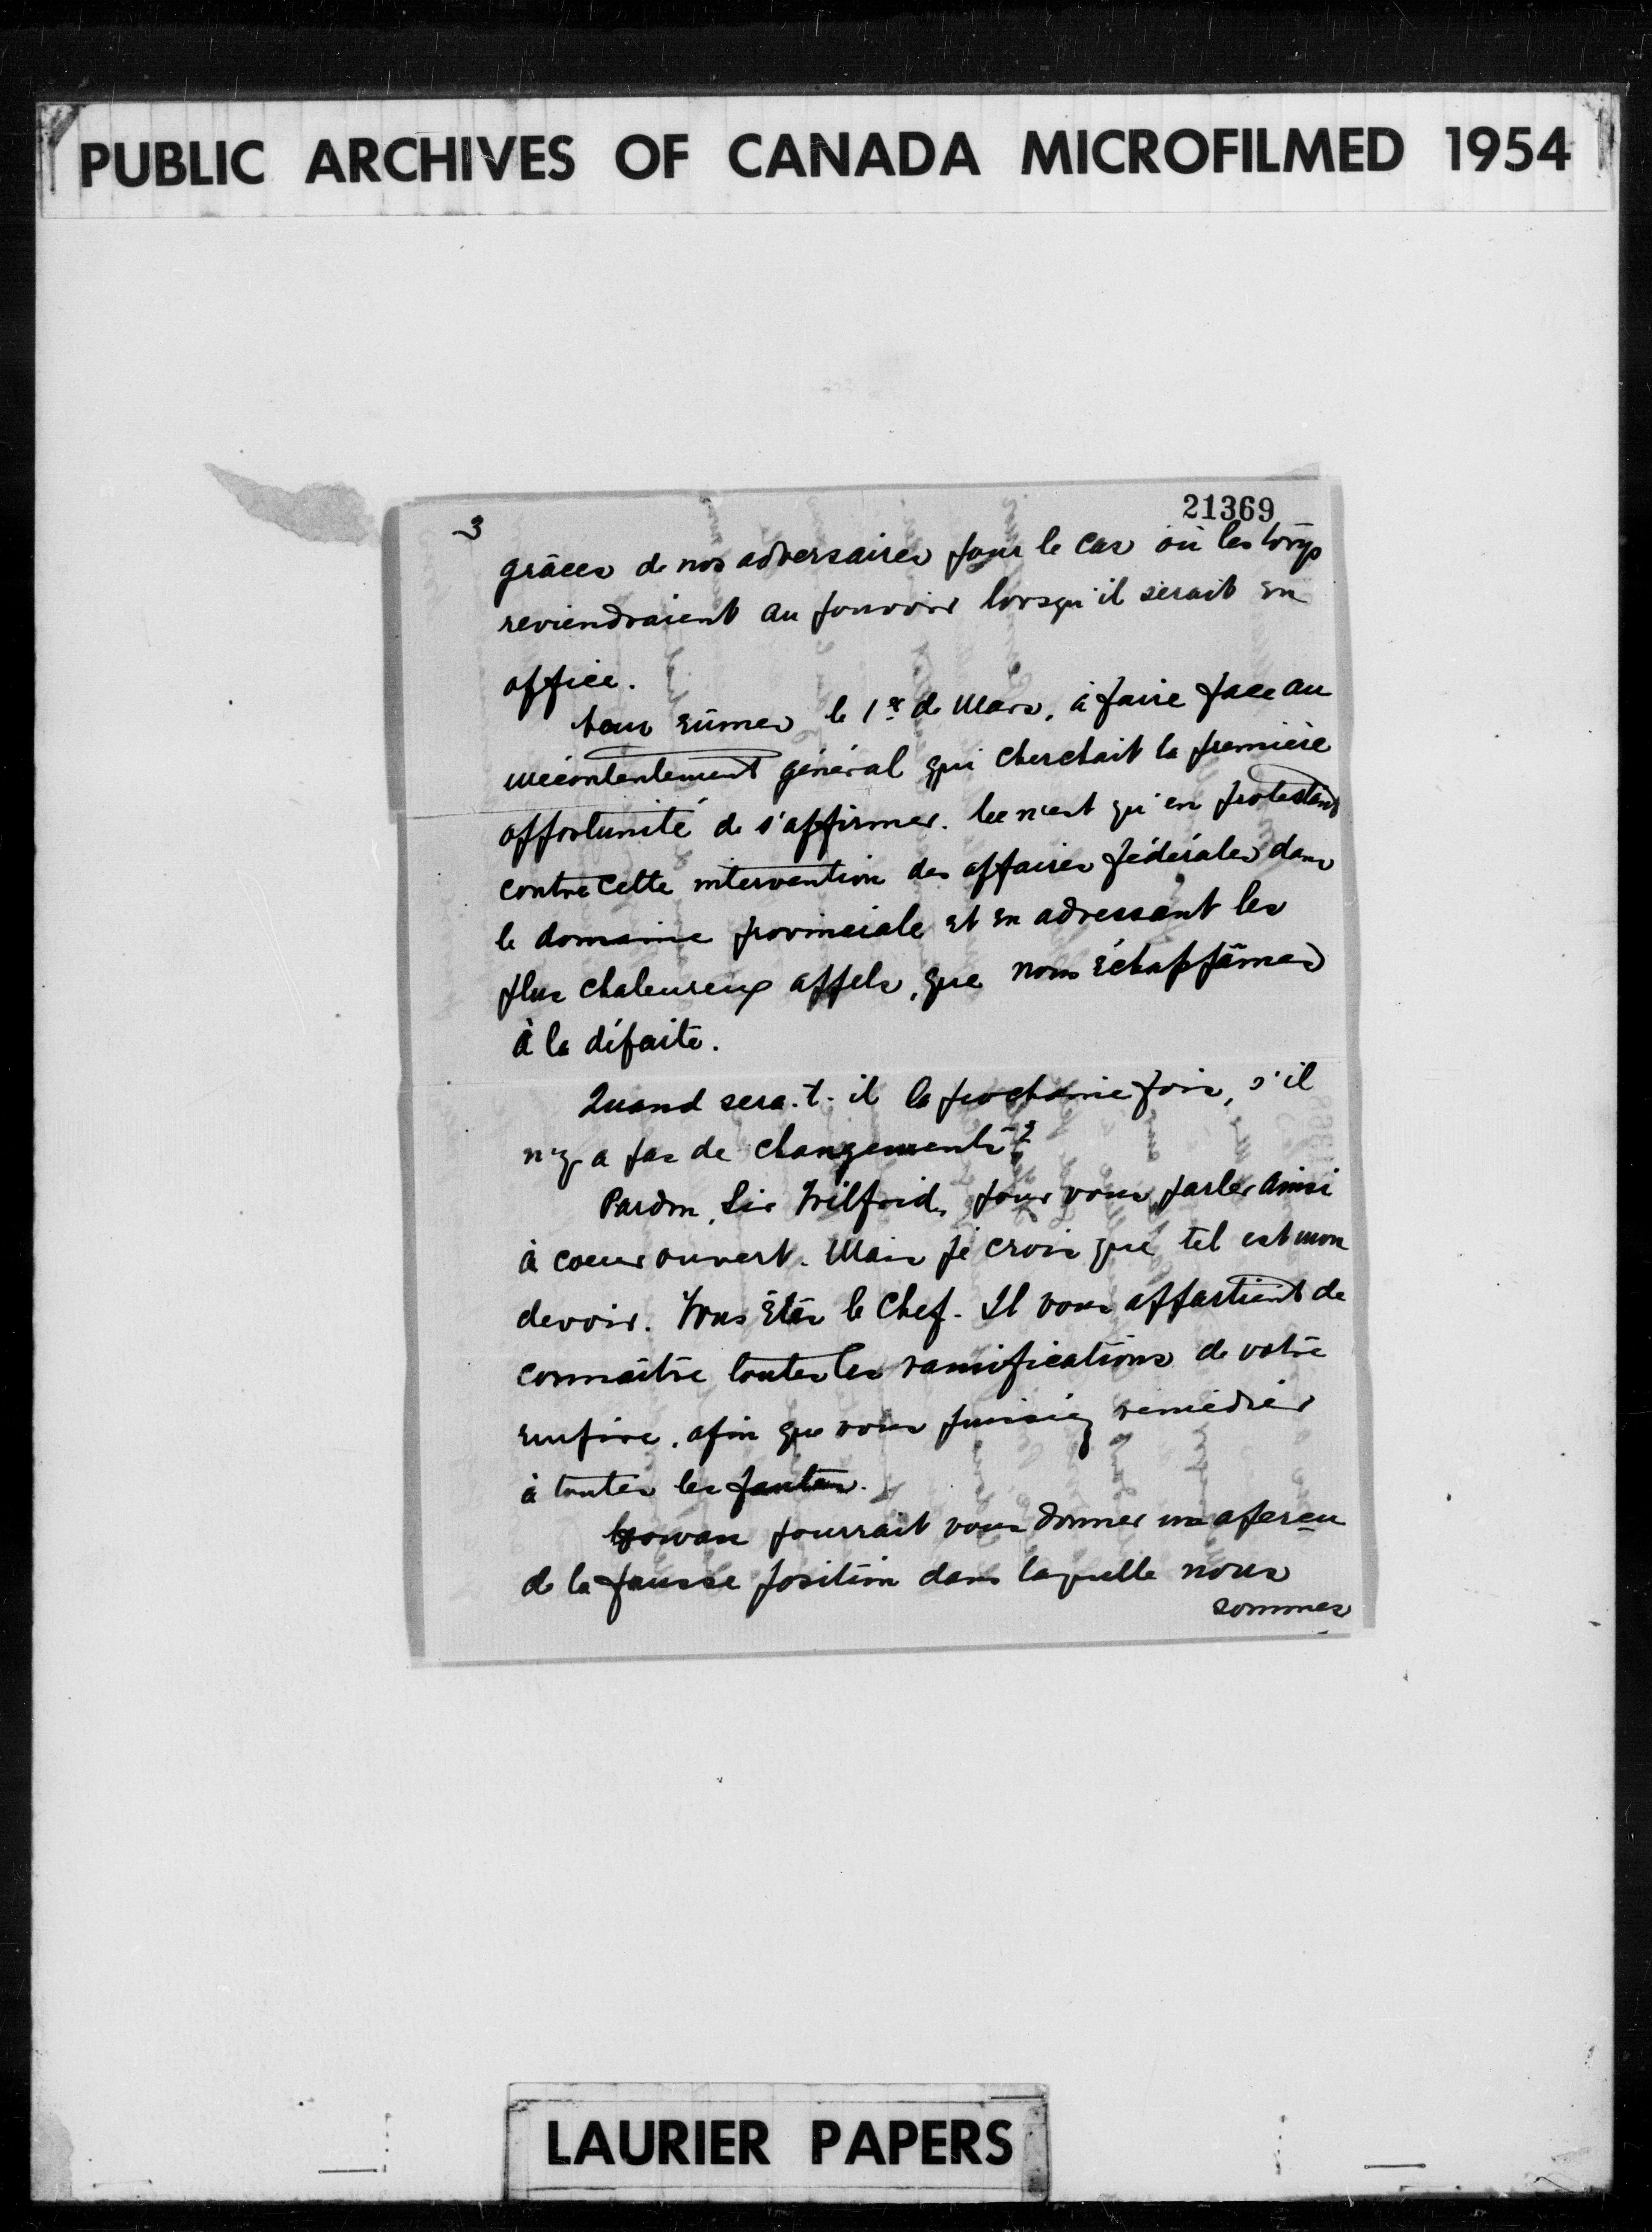 PUBLIC ARCHIVES OF CANADA MICROFILMED 1954
21369
3
grâces de nos adversaires pour le cas où les torys
reviendraient au pouvoir lorsqu'il serait en
office.
Nous eûmes le 1er de Mars, à faire face au
mécontentement général qui cherchait la première
opportunité de s'affirmer. Ce n'est qu'en protestant
contre cette intervention des affaires fédérales dans
le domaine provinciale et en adressant les
plus chaleureux appels, que nous échappâmes
à la défaite.
Quand sera-t-il la prochaine fois, s'il
n'y a pas de changements?
Pardon, Sir Wilfrid, pour vous parler ainsi
à coeur ouvert. Mais je crois que tel est mon
devoir. Vous êtes le Chef. Il vous appartient de
connaître toutes les ramifications de votre
empire, afin que vous puissiez remédier
à toutes les fautes.
Gowan pourrait vous donner un aperçu
de la fausse position dans laquelle nous
sommes
LAURIER PAPERS